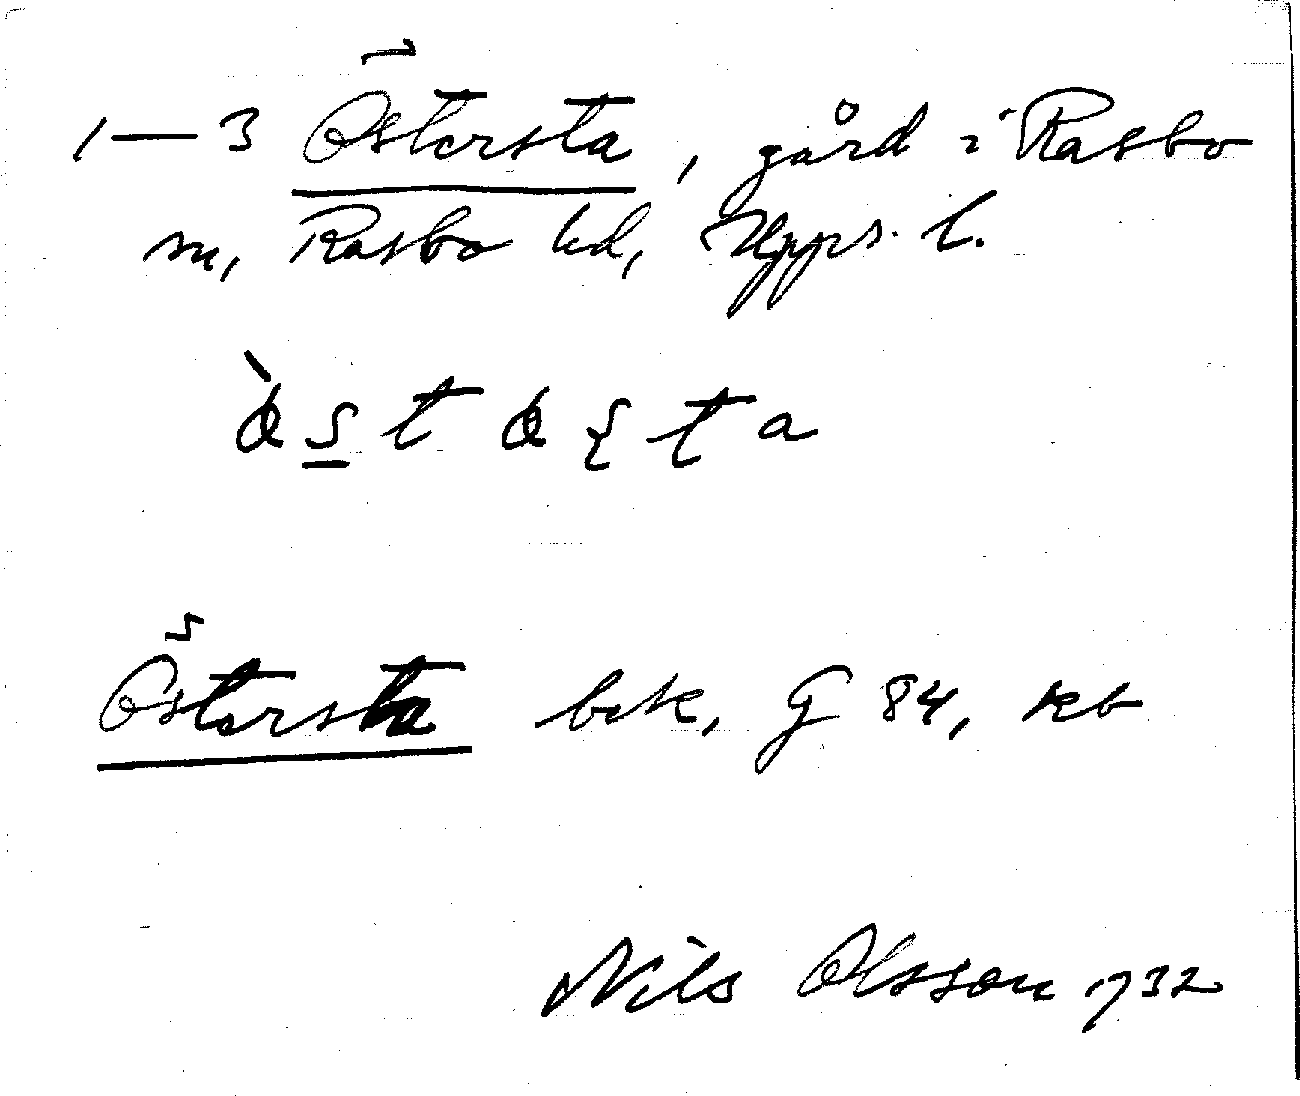 1–3 Östersta, gård i Rasbo
sn, Rasbo hd, Upps. l.
Östersta bek, G 84, kb
Nils Olsson 1932